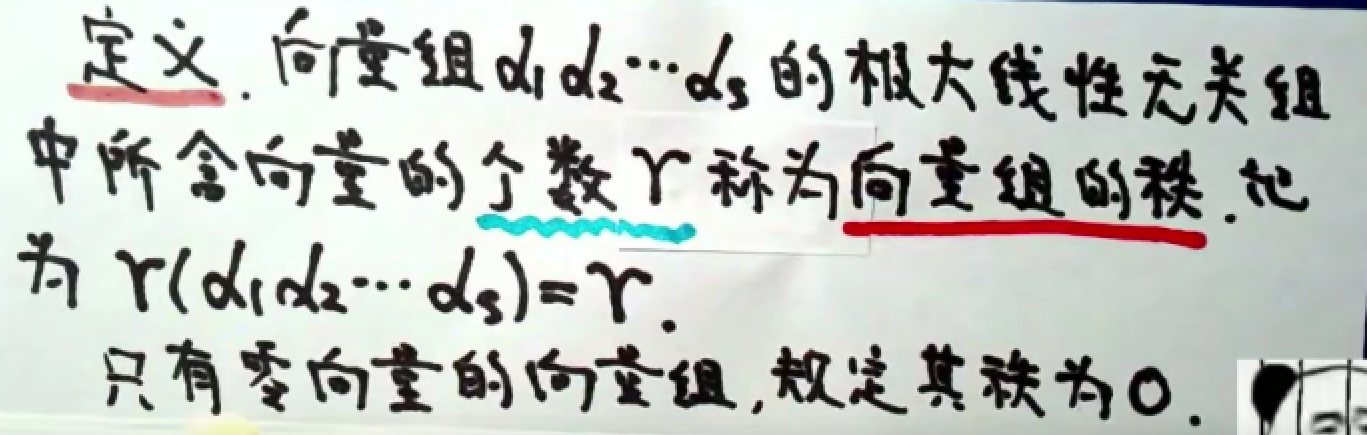 定义. 向量组 α₁ α₂ ⋯ αₛ 的极大线性无关组
中所含向量的个数 r 称为向量组的秩. 记
为 r(α₁ α₂ ⋯ αₛ) = r.
只有零向量的向量组, 规定其秩为0.